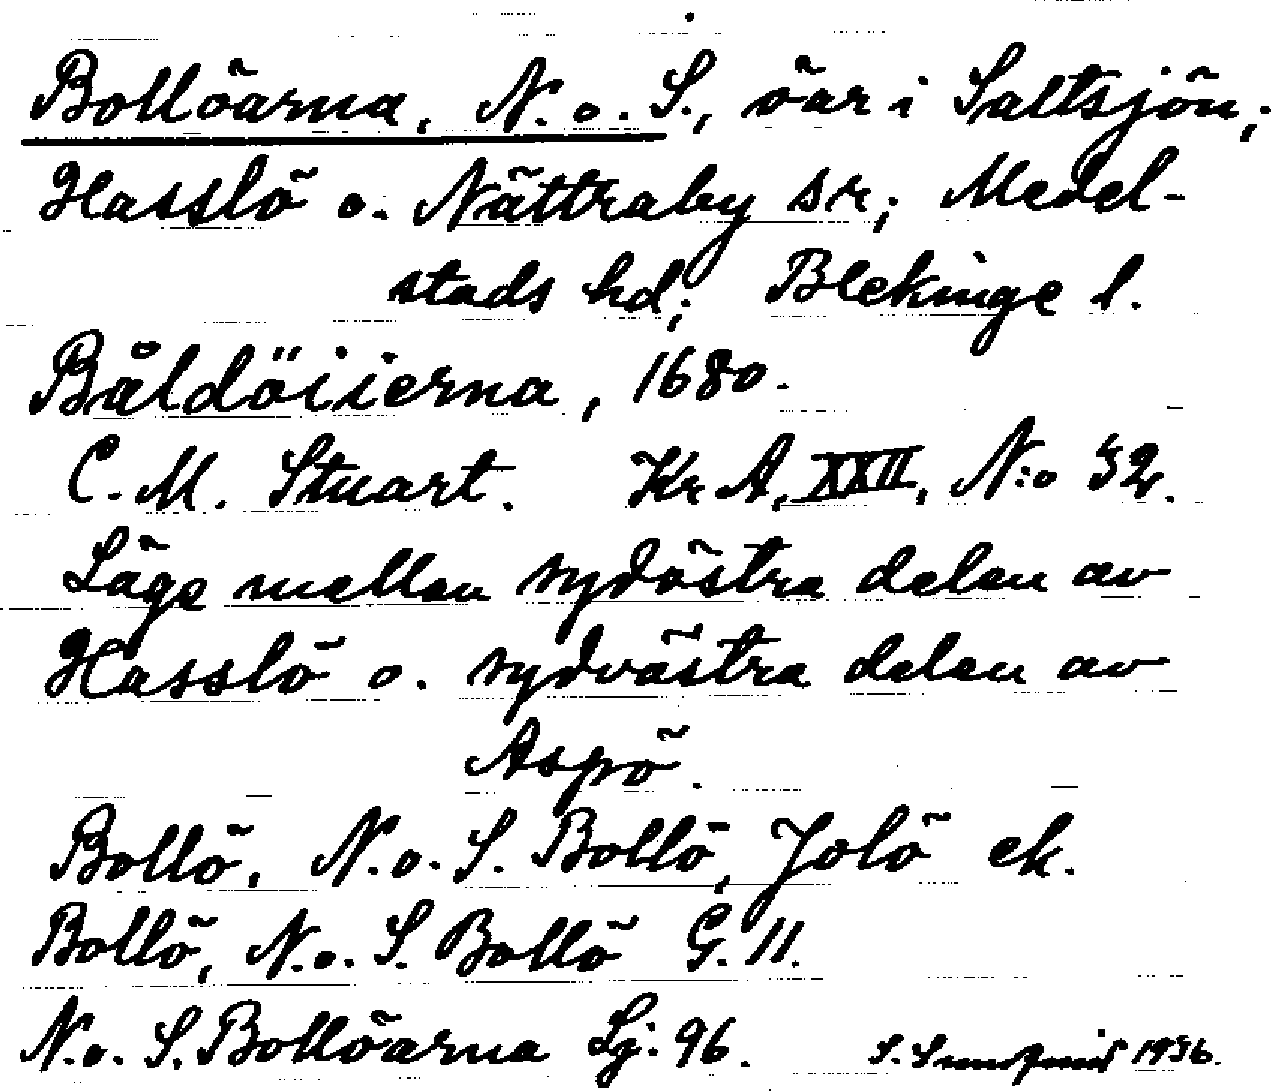 Bollöarna, N. o. S., öar i Saltsjön;
Hasslö o. Nättraby sr; Medel-
stads hd; Blekinge l.
Båldöiierna, 1680.
C. M. Stuart. Kr A, XXII, N:o 32.
Läge mellan sydöstra delen av
Hasslö o. sydvästra delen av
Aspö.
Bollö, N. o. S. Bollö, Jolö ek.
Bollö, N. o. S. Bollö G. 11.
N. o. S. Bollöarna Sj. 96.
S. 1936.